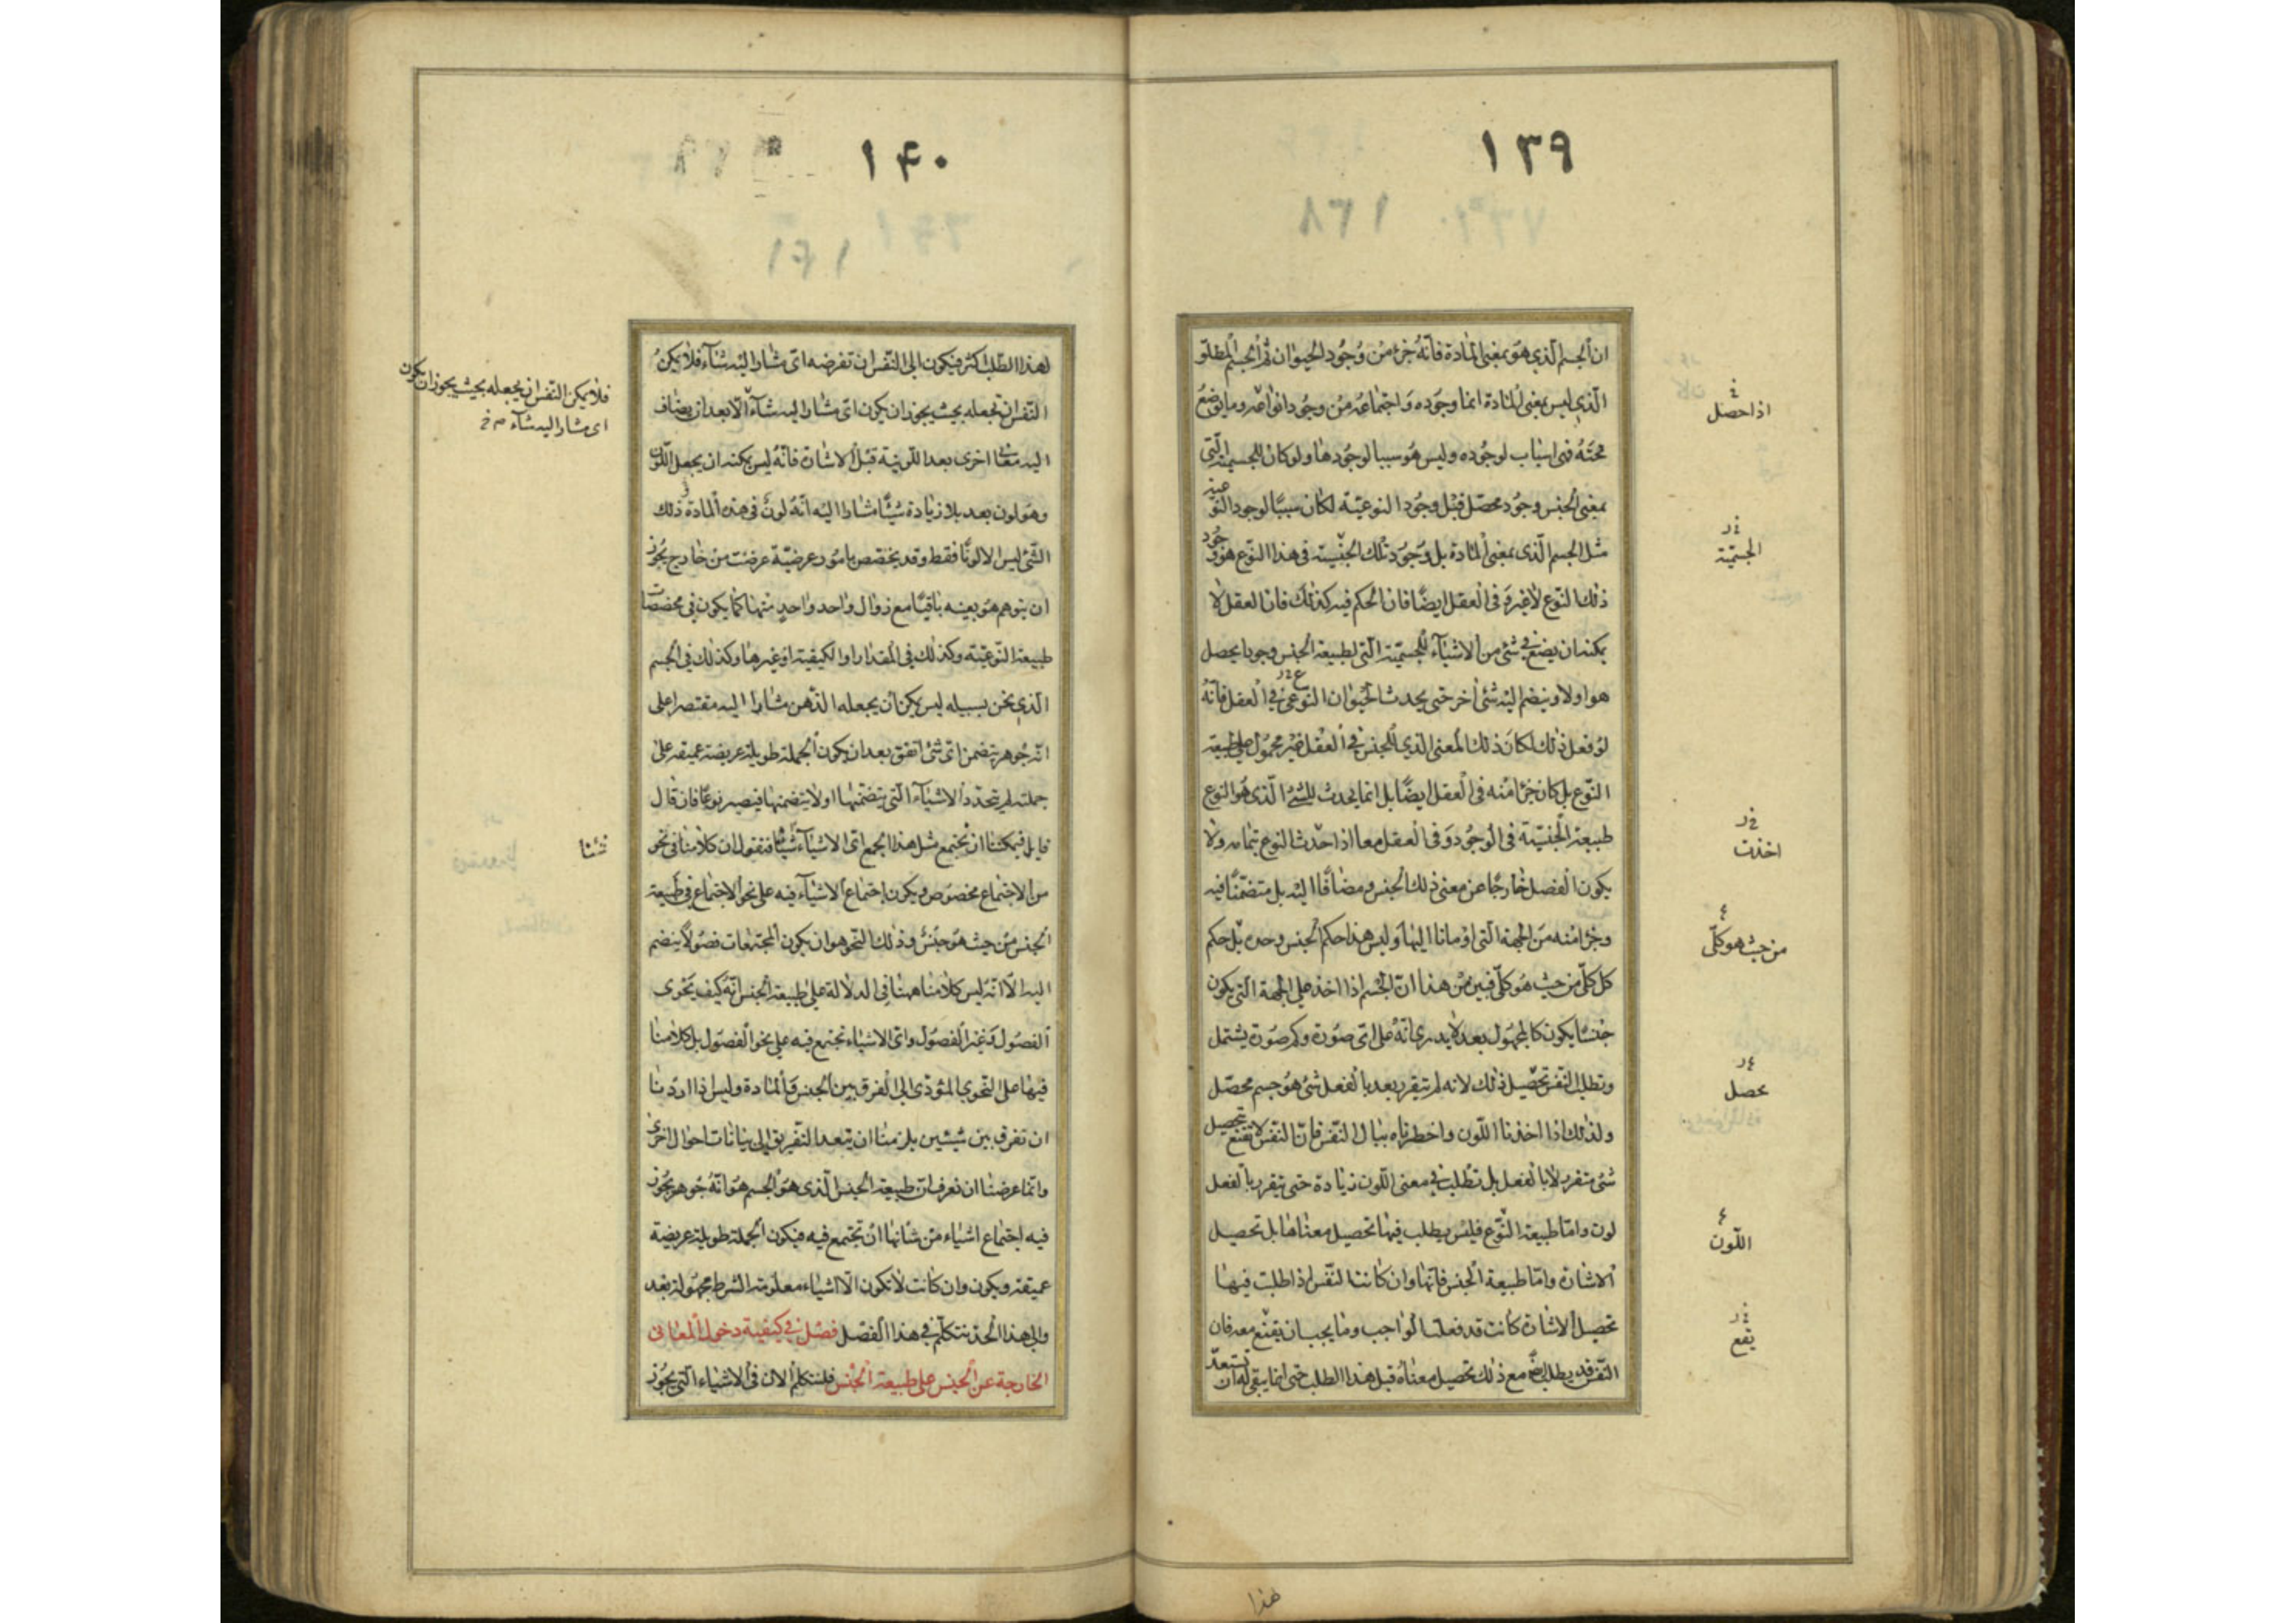 ١٣٩
ان الجسم الذي هو بمعنى المادة فانه جزء من وجود الحيوان ثم الجسم المطلق
الذي ليس بمعنى المادة انما وجوده واجتماعه من وجود انواعه وما يوضع
تحته فهى اسباب لوجوده وليس هو سببا لوجودها ولو كان للجسمية التى
بمعنى الجنس وجود محصل قبل وجود النوعية لكان سببا لوجود النوعية
مثل الجسم الذى بمعنى المادة بل وجود تلك الجنسية فى هذا النوع هو وجود
ذلك النوع لا غير وفى العقل ايضا فان الحكم فيه كذلك فان العقل لا
يمكنه ان يضع فى شئ من الاشياء للجسمية التى لطبيعة الجنس وجودا يحصل
هو اولا وينضم اليه شئ اخر حتى يحدث الحيوان النوعى فى العقل فانه
لو فعل ذلك لكان ذلك المعنى الذي للجنس فى العقل غير محمول على طبيعة
النوع بل كان جزأ منه فى العقل ايضا بل انما يحدث للشئ الذى هو النوع
طبيعة الجنسية فى الوجود وفى العقل معا اذا حدث النوع بتمامه ولا
يكون الفصل خارجا عن معنى ذلك الجنس ومضافا اليه بل متضمنا فيه
وجزأ منه من الجهة التى اومأنا اليها وليس هذا حكم الجنس وحده بل حكم
كل كلى من حيث هو كلى فبين من هذا ان الجسم اذا اخذ على الجهة التى يكون
جنسا يكون كالمجهول بعد لا يدرى انه على اى صورة وكم صورة يشتمل
وتطلب النفس تحصيل ذلك لانه لم يتقرر بعد بالفعل شئ هو جسم محصل
ولذلك اذا اخذنا اللون واخطرناه ببال النفس فان النفس لا يقنع بتحصيل
شئ متقرر لا بالفعل بل تطلب فى معنى اللون زيادة حتى يتقرر بالفعل
لون واما طبيعة النوع فليس يطلب فيها تحصيل معناها بل تحصيل
الاشارة واما طبيعة الجنس فانها وان كانت النفس اذا طلبت فيها
تحصيل الاشارة كانت قد فعلت الواجب وما يجب ان يقنع معه فان
النفس قد يطلب ايضا مع ذلك تحصيل معناه قبل هذا الطلب حتى انما يبقى له ان تستعد
اذا حصل
الجسمية
اخذت
من حيث هو كلى
محصل
اللون
يقع
هذا
١۴٠
لهذا الطلب اكثر فيكون الى النفس ان تفرضه اى مشار اليه شاء فلا يكن
النفس ان تجعله بحيث يجوز ان يكون اى مشار اليه شاء الا بعد ان يضاف
اليه معانى اخرى بعد اللونية قبل الاشارة فانه ليس يمكنه ان يجعل اللون
وهو لون بعد بلا زيادة شيئا مشارا اليه انه لون فى هذه المادة وذلك
الشئ ليس الا لونا فقط وقد يخصص بامور عرضية عرضت من خارج يجوز
ان يتوهم هو بعينه باقيا مع زوال واحد واحد منها كما يكون فى مخصصات
طبيعة النوعية وكذلك فى المقدار او الكيفية او غيرها وكذلك فى الجسم
الذى نحن بسبيله ليس يمكن ان يجعله الذهن مشارا اليه مقتصرا على
انه جوهر يتضمن اى شئ اتفق بعد ان يكون الجملة طويلة عريضة عميقة على
جملته لم يتحدد الاشياء التى يتضمنها او لا يتضمنها فيصير نوعا فان قال
قايل فيمكننا ان نجتمع مثل هذا الجمع اى الاشياء شيئا فنقول ان كلامنا فى نحو
من الاجتماع مخصوص ويكون اجتماع الاشياء فيه على نحو الاجتماع فى طبيعة
الجنس من حيث هو جنس وذلك النحو هو ان يكون المجتمعات فصولا ينضم
اليه الا انه ليس كلامنا ههنا فى الدلالة على طبيعة الجنس انه كيف يحوى
الفصول وغير الفصول واى الاشياء تجتمع فيه على نحو الفصول بل كلامنا
فيها على النحو المؤدى الى الفرق بين الجنس والمادة وليس اذا اردنا
ان نفرق بين شيئين يلزمنا ان يتعدا التفريق الى بيانات احوال اخرى
وانما غرضنا ان نعرف ان طبيعة الجنس الذى هو الجسم هو انه جوهر يجوز
فيه اجتماع اشياء من شانها ان تجتمع فيه فيكون الجملة طويلة عريضة
عميقة ويكون وان كانت لا تكون الا اشياء معلومة الشرط مجهولة بعد
والى هذا الحد نتكلم فى هذا الفصل فصل فى كيفية دخول المعانى
الخارجة عن الجنس على طبيعة الجنس فلنتكلم الان فى الاشياء التى يجوز
فلا يمكن النفس ان يجعله بحيث يجوز ان يكون
اى مشار اليه شاء
شئنا